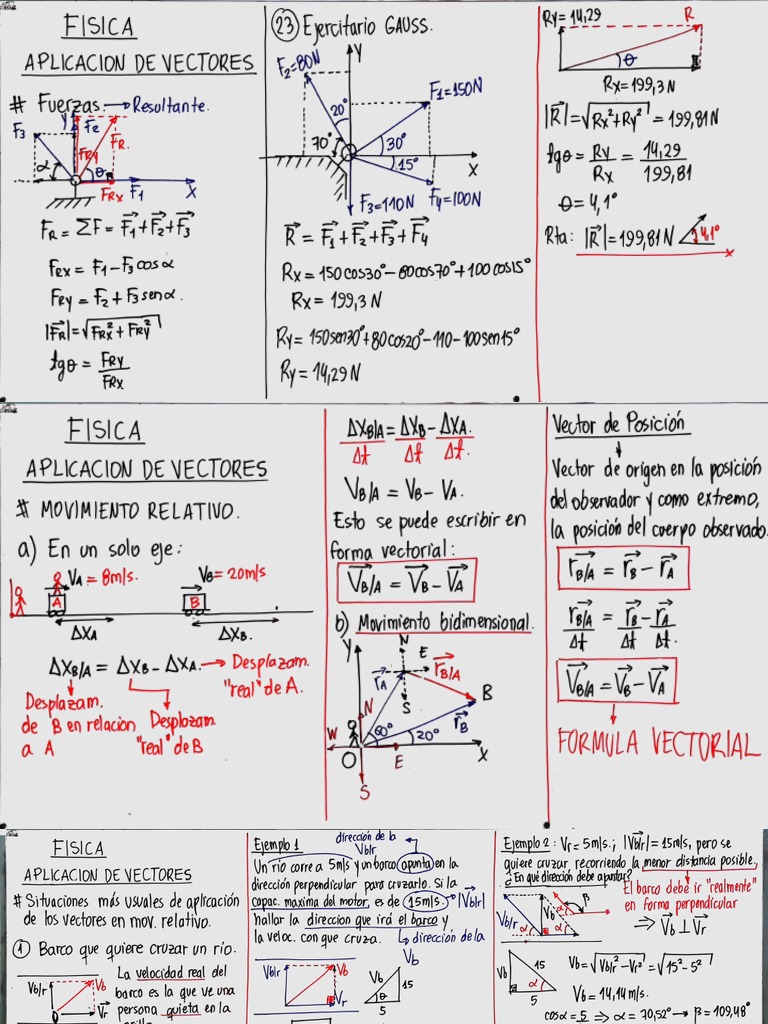 FISICA
APLICACION DE VECTORES
# Fuerzas → Resultante.
F3
Y
F2
FR
FRy
α
θ
FRx
F1
X
FR = ΣF = F1 + F2 + F3
FRx = F1 - F3 cos α
FRy = F2 + F3 sen α.
|FR| = √FRx² + FRy²
tgθ = FRy
FRx
23 Ejercitario GAUSS.
F2=80N
Y
F1=150N
20°
70°
30°
15°
X
F3=110N
F4=100N
R = F1 + F2 + F3 + F4
Rx = 150 cos30° - 80cos70° + 100 cos15°
Rx = 199,3 N
Ry = 150sen30° + 80cos20° - 110 - 100sen15°
Ry = 14,29 N
Ry = 14,29
R
θ
Rx = 199,3 N
|R| = √Rx² + Ry² = 199,81N
tgθ = Ry = 14,29
Rx 199,81
θ = 4,1°
Rta: |R| = 199,81N 4,1°
x
FISICA
APLICACION DE VECTORES
# MOVIMIENTO RELATIVO.
a) En un solo eje:
VA = 8m/s.
VB = 20m/s.
A
B
ΔXA
ΔXB.
ΔXB/A = ΔXB - ΔXA. → Desplazam.
"real" de A.
Desplazam.
de B en relación
a A
Desplazam
"real" de B
ΔXB/A = ΔXB - ΔXA.
Δt Δt Δt.
VB/A = VB - VA.
Esto se puede escribir en
forma vectorial:
VB/A = VB - VA
b) Movimiento bidimensional.
Y
N
E
rA
rB/A
S
B
N
rB
W
60°
20°
O
E
X
S
Vector de Posición
Vector de origen en la posición
del observador y como extremo,
la posición del cuerpo observado.
rB/A = rB - rA
rB/A = rB - rA
Δt Δt Δt.
VB/A = VB - VA
FORMULA VECTORIAL
FISICA
APLICACION DE VECTORES
# Situaciones más usuales de aplicación
de los vectores en mov. relativo.
① Barco que quiere cruzar un río.
Vb/r
Vb
Vr
La velocidad real del
barco es la que ve una
persona quieta en la
Ejemplo 1
dirección de la
Vb/r
Un río corre a 5m/s y un barco apunta en la
dirección perpendicular para cruzarlo. Si la
capac. maxima del motor, es de 15m/s. |Vb/r|
hallar la direccion que irá el barco y
la veloc. con que cruza. ↳ dirección de la
Vb
Vb/r
Vb
Vr
Vb
15
θ
5
Ejemplo 2: Vr = 5m/s.; |Vb/r| = 15m/s, pero se
quiere cruzar recorriendo la menor distancia posible.
¿En qué dirección debe apuntar?
El barco debe ir "realmente"
en forma perpendicular
⇒ Vb ⊥ Vr
Vb/r
Vb
α
β
α
Vr
Vb
15
α
5
Vb = √Vb/r² - Vr² = √15² - 5²
Vb = 14,14 m/s.
cosα = 5 ⇒ α = 70,52° → β = 109,48°